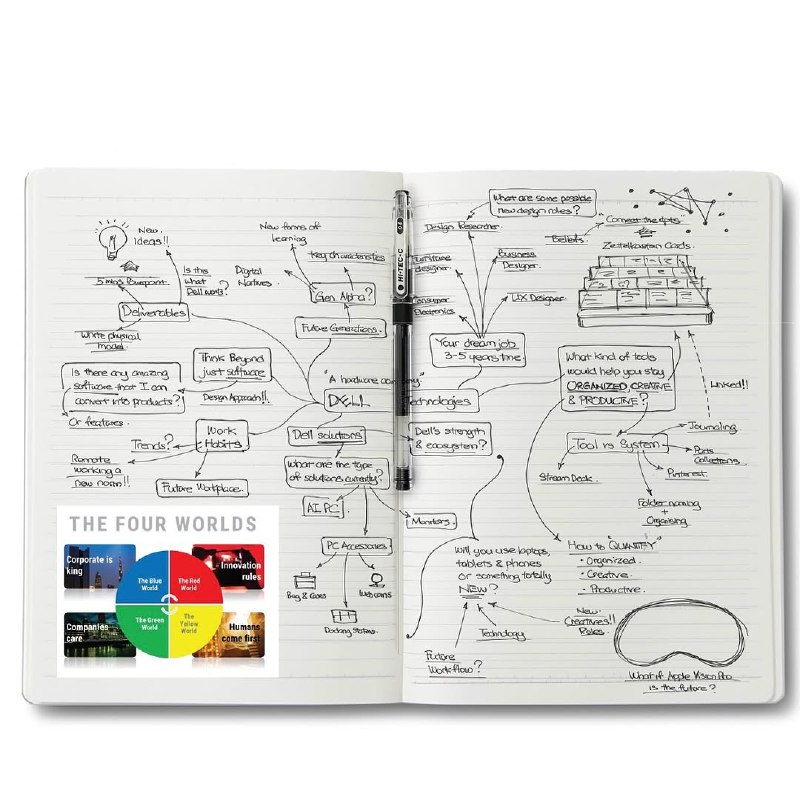 New
Ideas!!
5 mins Blueprint
Is this
what
Dell wants?
Deliverables
White physical
model
Is there any amazing
software that I can
convert into products?
Or features.
Think Beyond
just software
Design Approach!!
Work
Habits
Trends?
Remote
working a
new norm!!
Future Workplace.
New forms of
learning
Key characteristics
Digital
Natives.
Gen Alpha?
Future Generations.
"A hardware company"
DELL
Technologies
Dell solutions
What are the type
of solutions currently?
AI PC
Monitors.
PC Accessories
Bag & Cases
Webcams
Docking Station
THE FOUR WORLDS
Corporate is
king
Innovation
rules
The Blue
World
The Red
World
The Green
World
The
Yellow
World
Companies
care
Humans
come first
HI-TEC-C
What are some possible
new design roles?
Design Researcher
Furniture
designer.
Business
Designer.
Consumer
Electronics
UX Designer
Your dream job
3-5 years time
"Connect the dots"
Beliefs
Zettelkasten Cards.
What kind of tools
would help you stay
ORGANIZED CREATIVE
& PRODUCTIVE?
Linked!!
Dell's strength
& ecosystem?
Tool vs System
Journaling
Pinterest
Stream Deck.
Folder naming
+
Organising
Will you use laptops,
tablets & phones
or something totally
NEW?
Technology
Future
Workflow?
How to "QUANTIFY"
· Organized.
· Creative.
· Productive.
New
Creatives!!
Roles.
What if Apple Vision Pro
is the future?